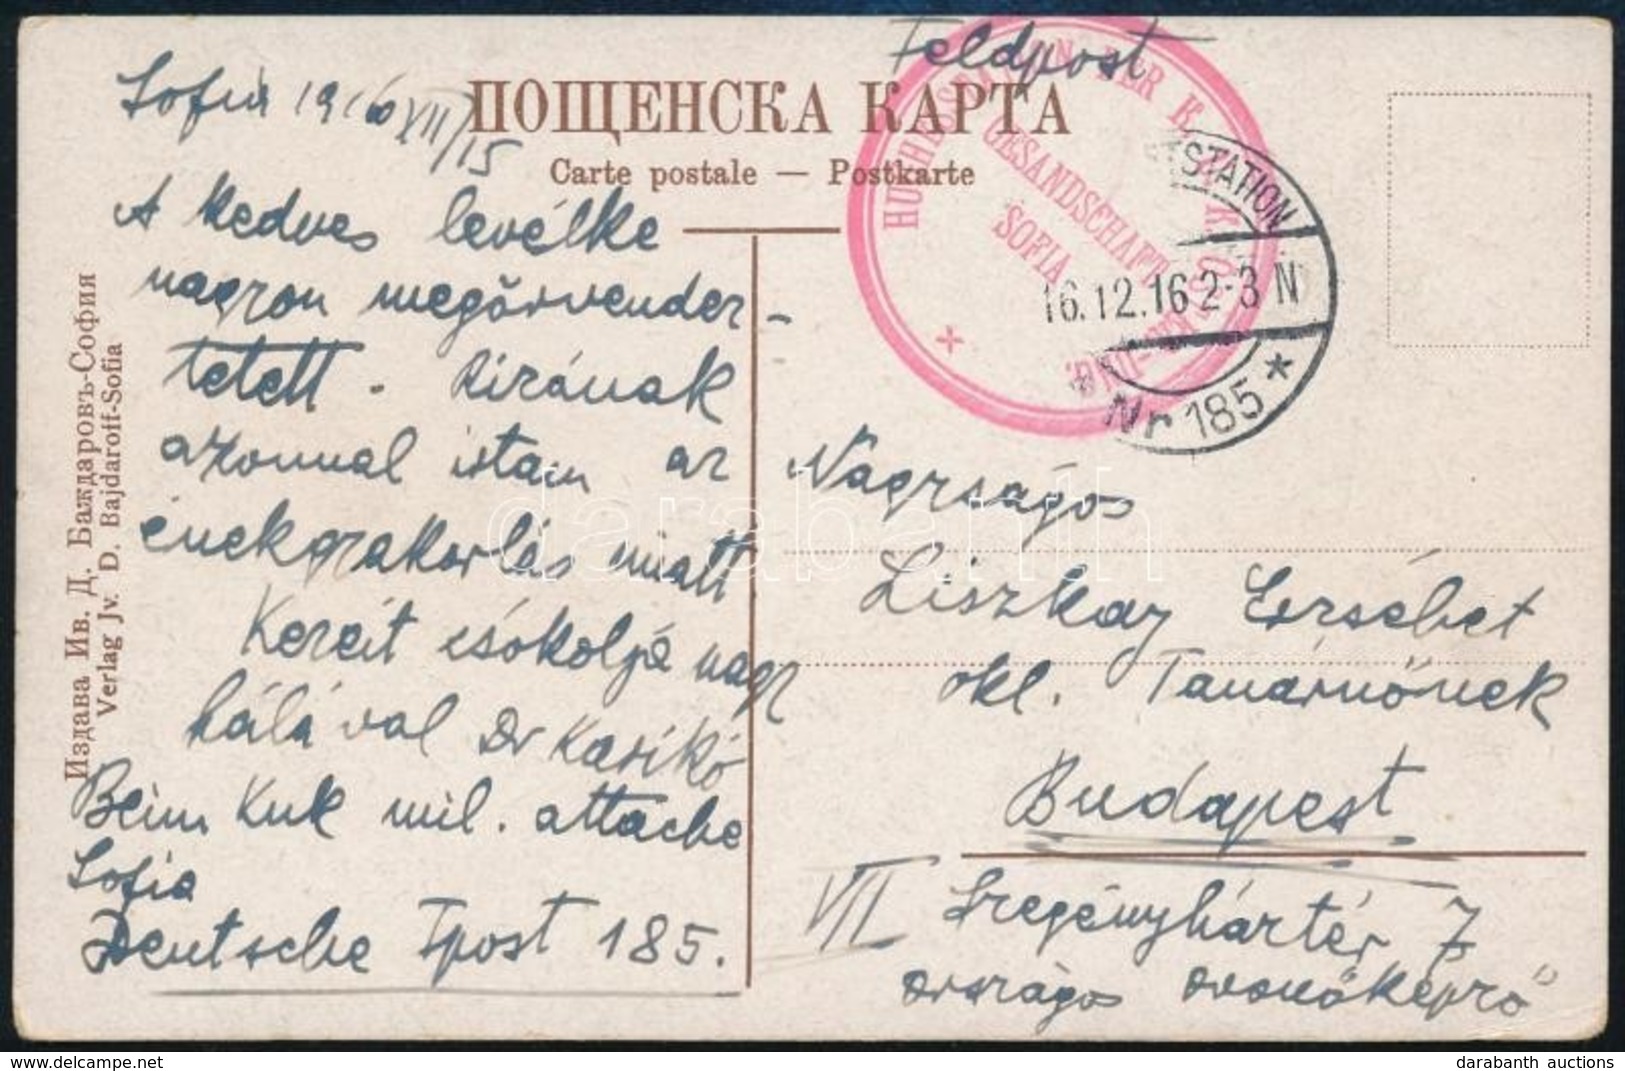 Feldpost
Sofia 1916 XII/15
ПОЩЕНСКА КАРТА
Carte postale — Postkarte
A kedves levélke
nagyon megörvendez-
tetett. Kirának
azonnal irtam az
énekgyakorlás miatt
Kezeit csókolja nagy
hálával Dr Karikó
Beim Kuk mil. attache
Sofia
Deutsche Fpost 185.
Издава Ив. Д. Баждаровъ-София
Verlag Jv. D. Bajdaroff-Sofia
DER K. U. K.
GESANDSCHAFT
SOFIA
STATION
16.12.16 2-3 N
Nr 185 *
Nagyságos
Liszkay Erzsébet
okl. Tanárnőnek
Budapest
VII Szegényháztér 7
országos óvonőképző
darabanth
darabanth auctions